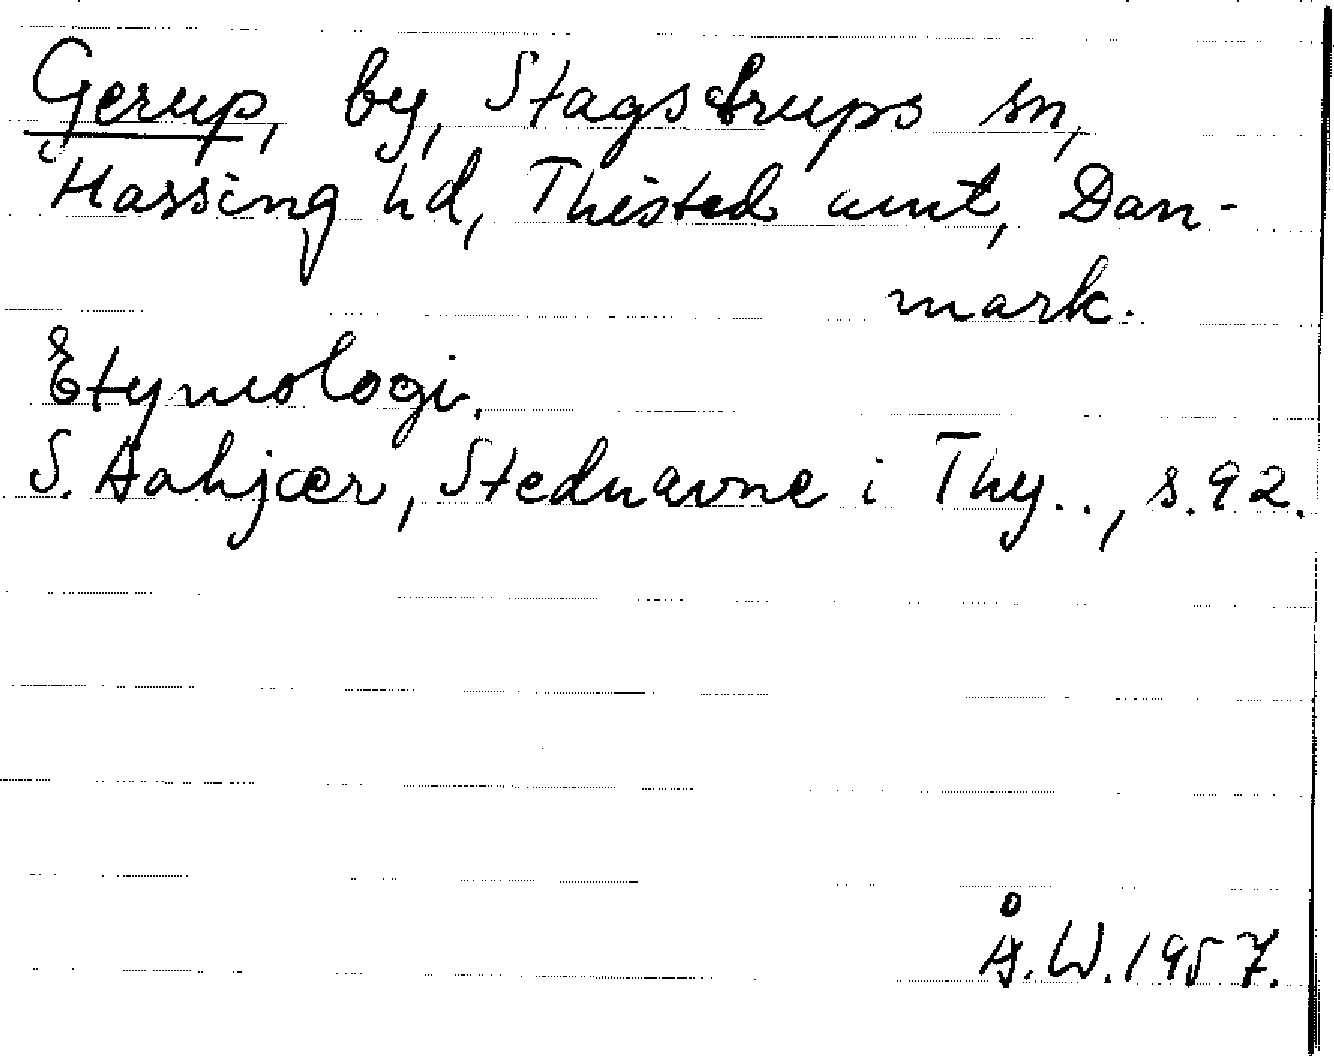 Gerup, by, Stagstrups sn,
Hassing hd, Thisted amt, Dan-
mark.
Etymologi.
S. Aakjær, Stednavne i Thy.., s. 92.
Å. W. 1957.